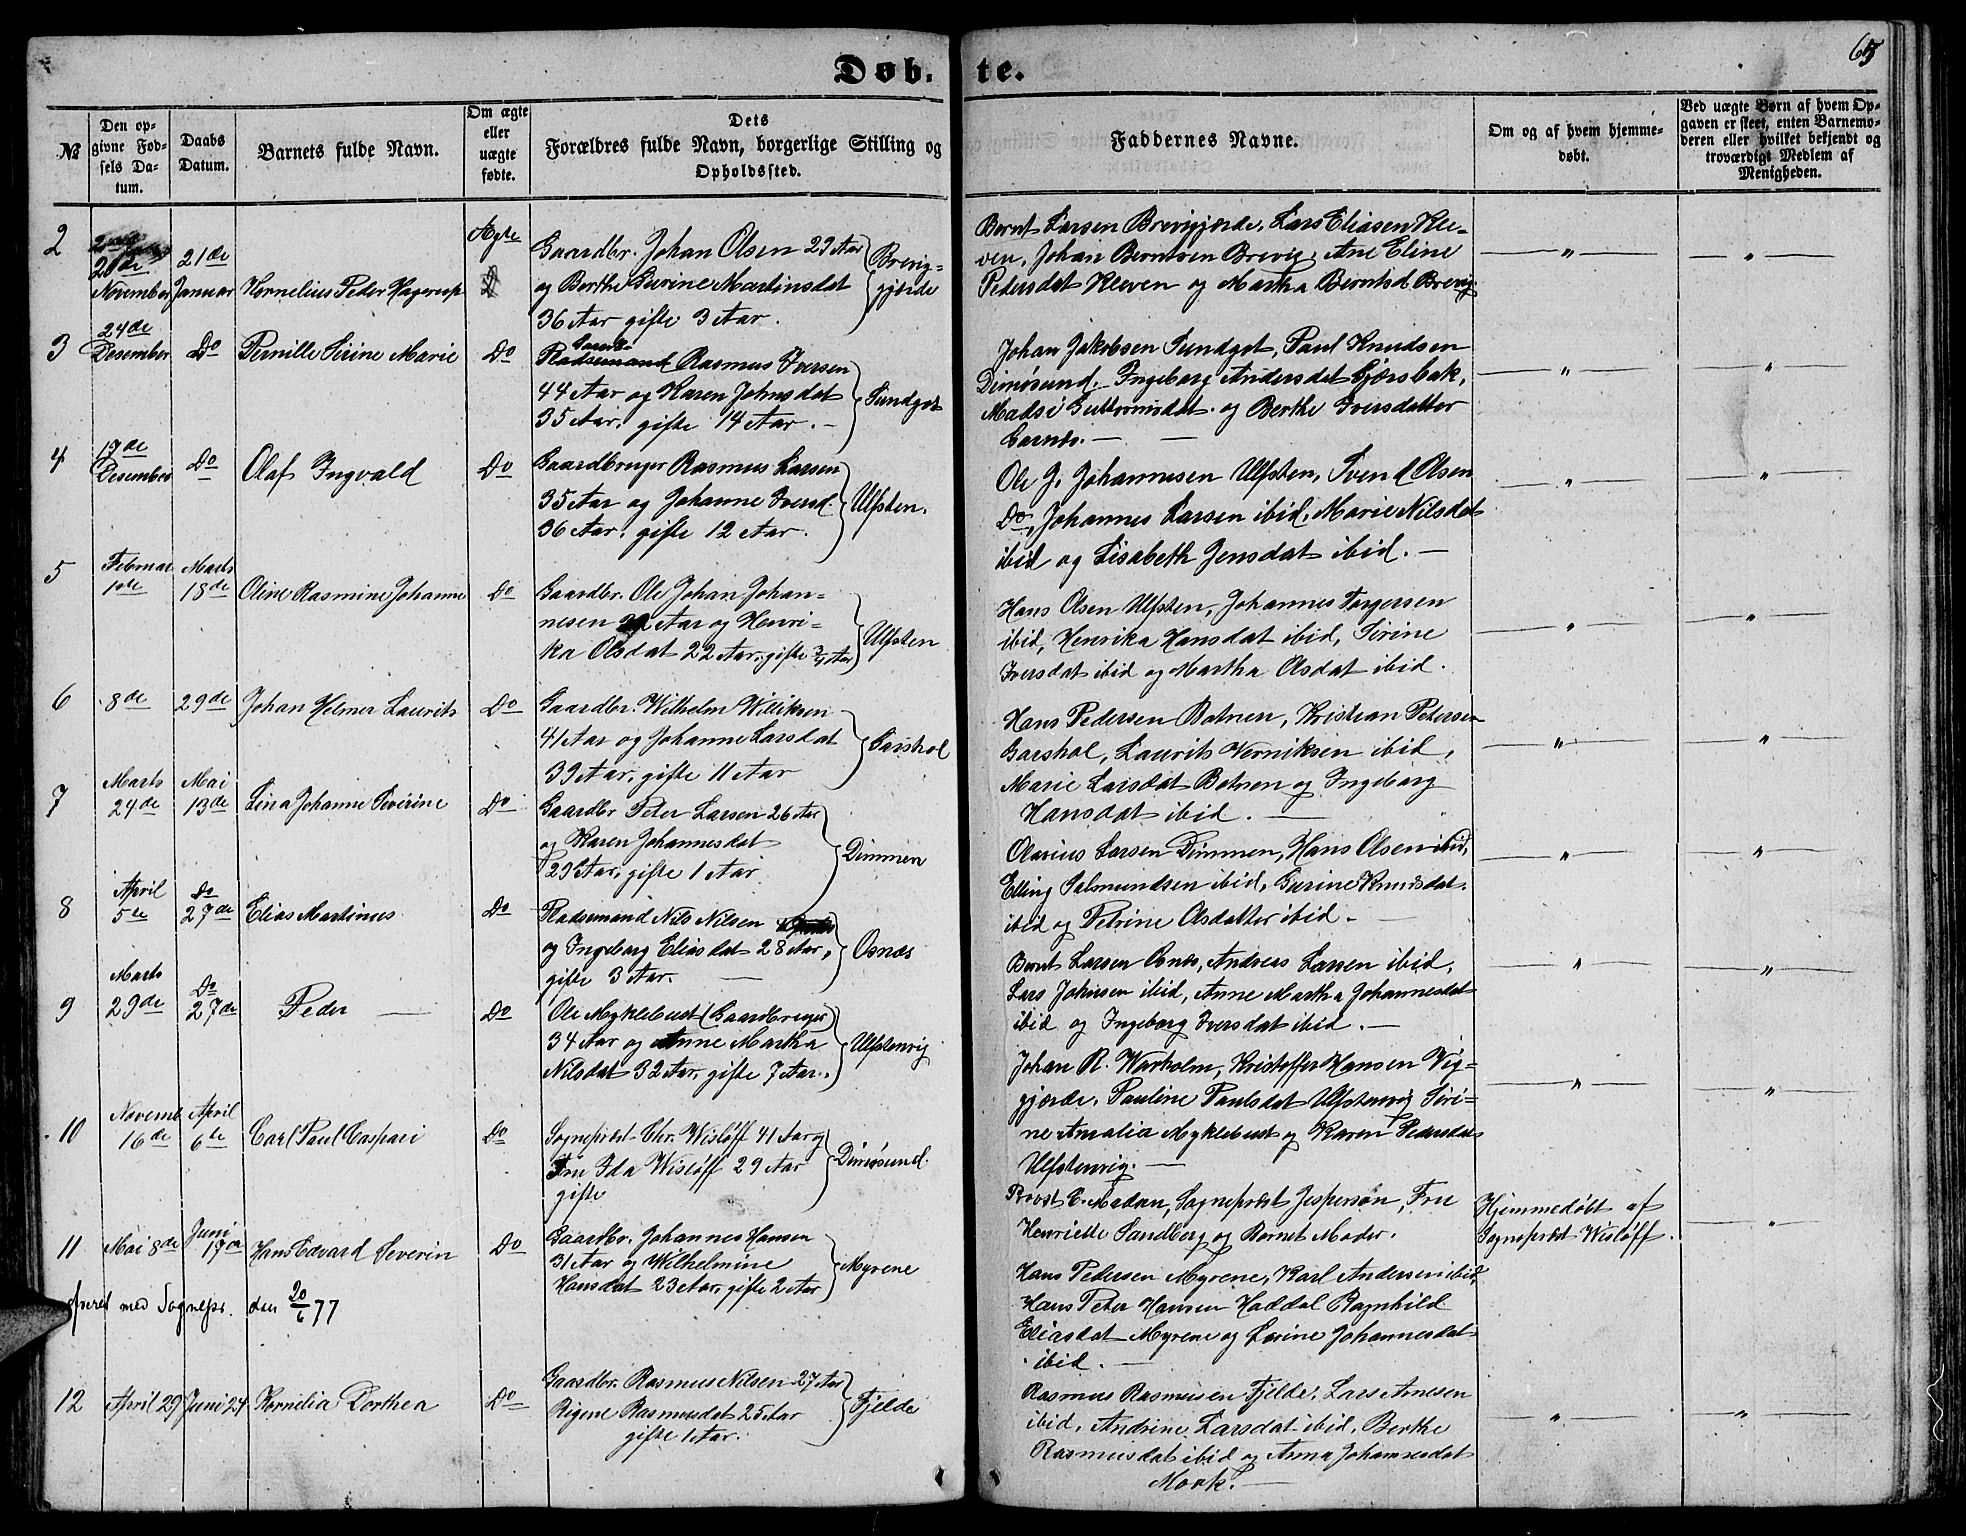 Døb. te.
65
№
Den op-
givne Fød-
sels Da-
tum.
Daabs
Datum.
Barnets fulde Navn.
Om ægte
eller
uægte
fødte.
Dets
Forældres fulde Navn, borgerlige Stilling og
Opholdssted.
Faddernes Navne.
Om og af hvem hjemme-
døbt.
Ved uægte Børn af hvem Op-
gaven er skeet, enten Barnemo-
deren eller hvilket bekjendt og
troværdigt Medlem af
Menigheden.
2
20de
November
21de
Januar
Kornelius Peder Hagerup
Ægte
Gaardbr. Johan Olsen 29 Aar
og Berthe Gurine Martinsdat
36 Aar gifte 3 Aar.
Brevig-
gjerde
Bernt Larsen Brevigjerde, Lars Eliasen Klee-
ven, Johan Berntsen Brevig, Ane Eline
Pedersdat Kleven og Martha Berntsd Brevig
—"—
—"—
3
24de
Desember
Do
Pernille Sirine Marie
Do
Gaardb.
Pladsmand Rasmus Iversen
44 Aar og Karen Johnsdat
35 Aar, gifte 14 Aar. -
Sundgot
Johan Jakobsen Sundgot, Paul Knudsen
Dimøsund, Ingeborg Andersdat Gjersbak,
Madsi Guttormsdat. og Berthe Iversdatter
Garnes. —
—"—
—"—
4
17de
Desember
Do
Olaf Ingvald
Do
Gaardbruger Rasmus Larsen
35 Aar og Johanne Iversd.
36 Aar, gifte 12 Aar.
Ulfsten.
Ole J. Johannesen Ulfsten, Svend Olsen
Do, Johannes Larsen ibid, Marie Nilsdat
ibid og Lisabeth Jensdat ibid. —
—"—
—"—
5
Februar
1de
Marts
18de
Oline Rasmine Johanne
Do
Gaardbr. Ole Johan Johan-
nesen 22 Aar og Henri-
ka Olsdat 22 Aar, gifte 3/4 Aar
Ulfsten
Hans Olsen Ulfsten, Johannes Torgersen
ibid, Henrika Hansdat ibid, Sirine
Iversdat ibid og Martha Olsdat ibid.
—"—
—"—
6
8de
29de
Johan Helmer Laurits
Do
Gaardbr. Wilhelm Williksen
41 Aar og Johanne Larsdat
39 Aar, gifte 11 Aar
Garshol
Hans Pedersen Botnen, Kristian Petersen
Garshol, Laurits Verniksen ibid,
Marie Larsdat Botnen og Ingeborg
Hansdat ibid. —
—"—
—"—
7
Marts
24de
Mai
13de
Lina Johanne Severine
Do
Gaardbr Peter Larsen 26 Aar
og Karen Johannesdat
29 Aar, gifte 1 Aar
Dimmen
Olarius Larsen Dimmen, Hans Olsen ibid,
Elling Salmundsen ibid, Gurine Knudsdat.
ibid og Petrine Olsdatter ibid. -
—"—
—"—
8
April
5te
Do
27de
Elias Martinus
Do
Pladsmand Nils Nilsen
og Ingeborg Eliasdat 28 Aar,
gifte 3 Aar. —
Osnæs
Bernt Larsen Osnæs, Andreas Larsen ibid,
Lars Johnsen ibid, Anne Martha Johannesdat
ibid og Ingeborg Iversdat ibid. —
—"—
—"—
9
Marts
29de
Do
27de
Peder —
Do
Ole Myklebust (Gaardbruger)
34 Aar og Anne Martha
Nilsdat 32 Aar, gifte 7 Aar.
Ulfstenvig
Johan R. Warholm, Kristoffer Hansen Vig-
gjerde, Pauline Paulsdat Ulfstenvig, Siri-
ne Amalia Myklebust og Karen Pedersdat
Ulfstenvig. —
—"—
—"—
10
Novemb
16de
April
6te
Carl Paul Caspari
Do
Sogneprest Chr. Wisløff 41 Aar og
Fru Ida Wisløff 29 Aar
gifte
Dimøsund.
Provst C. Madsen, Sogneprest Jespersøn, Fru
Henriette Sandberg og Barnet Moder.
Hjemmedøbt af
Sogneprest Wisløff.
—"—
11
Mai 8de
Juni
17de
Hans Edvard Severin
Do
Gaardbr. Johannes Hansen
31 Aar og Wilhelmine
Hansdat 23 Aar, gifte 2 Aar
Myrene
Hans Pedersen Myrene, Karl Andersen ibid,
Hans Peter Hansen Haddal Ragnhild
Eliasdat Myrene og Larine Johannesdat
ibid. —
med Sognepr. den 20/6 77
12
April 29
Juni 24
Kornelia Dorthea
Do
Gaardbr. Rasmus Nilsen 27 Aar
Rigene Rasmusdat 25 Aar
gifte 1 Aar.
Fjelde
Rasmus Rasmusen Fjelde, Lars Arnesen
ibid, Andrine Larsdat ibid, Berthe
Rasmusdat ibid og Anna Johannesdat
Mork. —
—"—
—"—